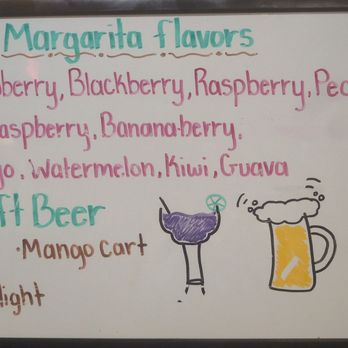 Margarita flavors
berry, Blackberry, Raspberry, Pea
aspberry, Banana-berry,
go, Watermelon, Kiwi, Guava
ft Beer
·Mango cart
light